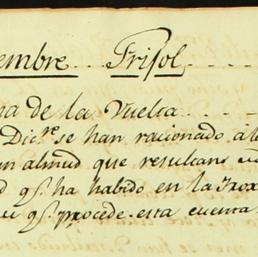 embre Frisol
a de la Vuelta
Dic.re se han racionado a
un almud que resultans
d q.e ha habido en la Trox
q.e procede esta cuenta